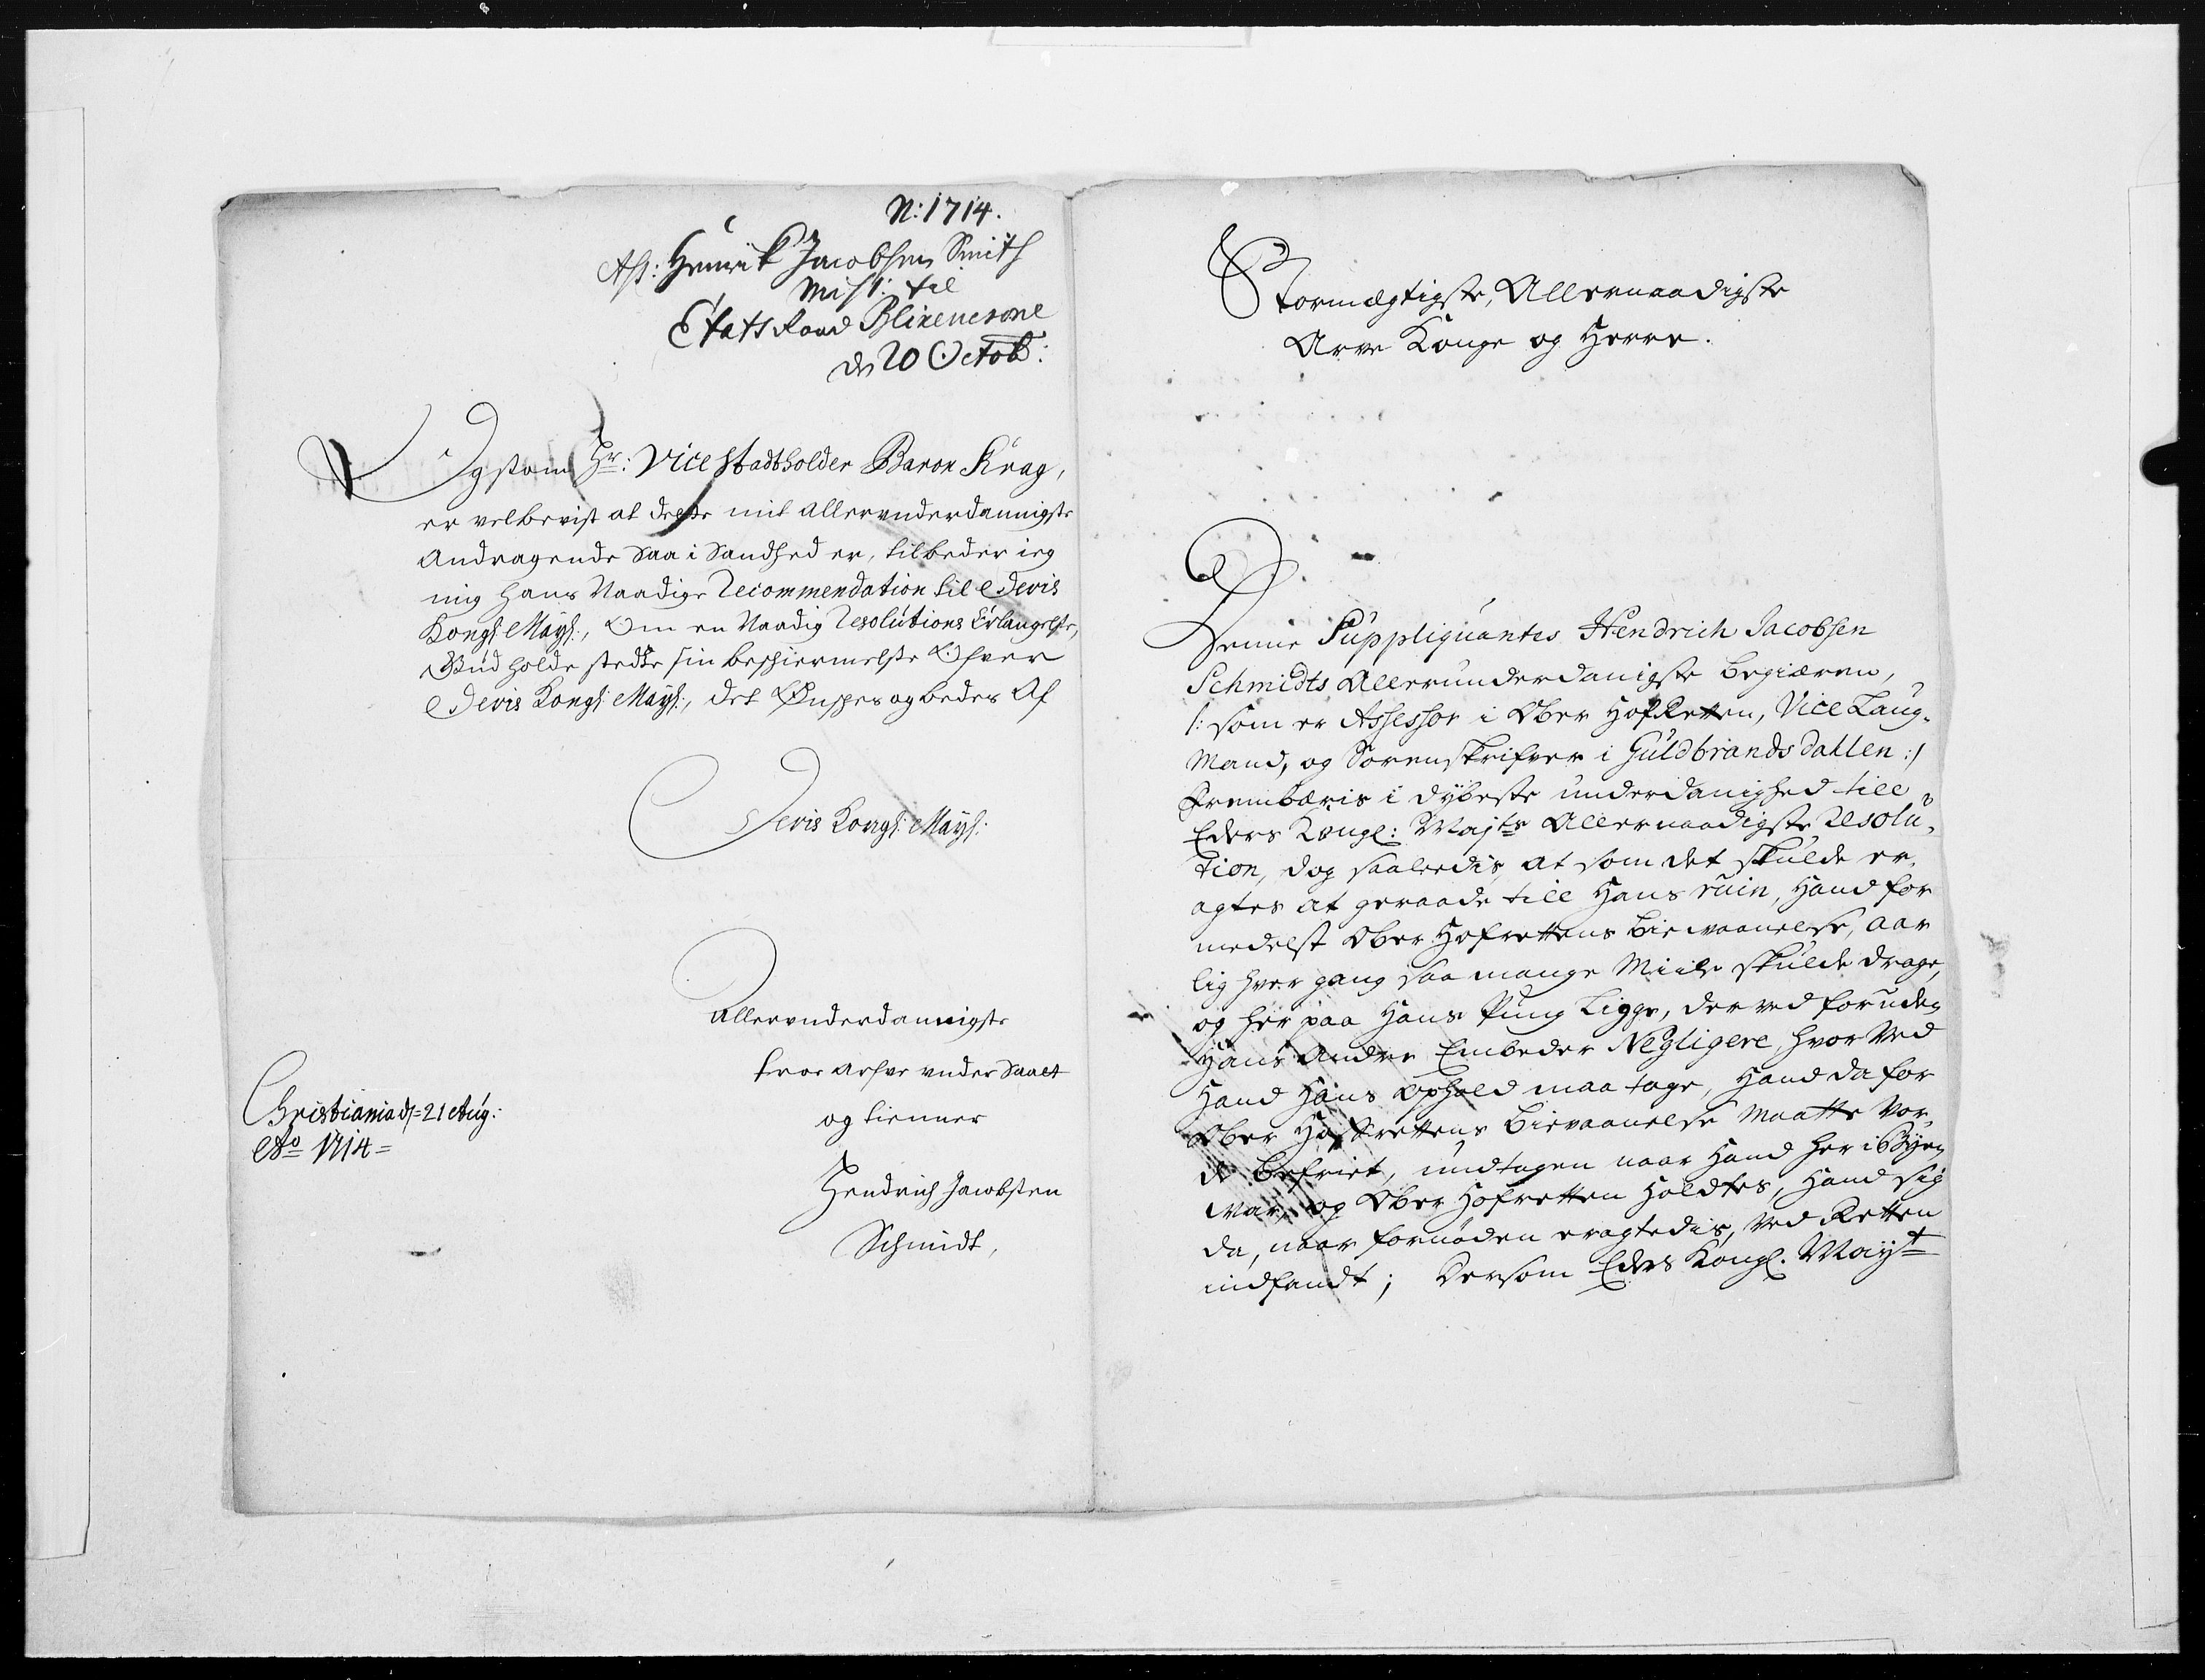 N: 1714.
Ass: Henrik Jacobsen Smith
Miss: til
EtatsRaad Blixencrone
d 20 Octob:
Ligesom Hr: Vice Stadtholder Baron Krag,
er velbevist at dette mit allervnderdannigste
Andragende saa i Sandhed er, tilbeder ieg
mig hans Naadige Recommendation til Deris
Kongl: Mayt:, Om en Naadig Resolutions Erlangelse,
Gud holde stedse sin beschiermelse Ofver
Deris Kongl: Mayt:, det Ønsches og bedes Af
Deris Kongl: Mayt:
Allervnderdannigste
troe arfve vnder Saatt
og tienner
Hendrich Jacobsen
Schmidt,
Christiania d= 21 Aug:
Ao 1714=
Stormægtigste, Allernaadigste
Arve Konge og Herre.
Denne Suppliquantes Hendrich Jacobsen
Schmidts Allerunderdanigste begiæren,
/: som er Assessor i Ober HofRetten, Vice Laug-
Mand, og Sorenskrifver i Guldbrandsdahlen :/
Frembæris i dybeste underdanighed till
Eders Kongl: Majts Allernaadigste Resolu-
tion, dog saaledis, at som det skulde er-
agtes at geraade till Hans ruin, Hand for
medelst Ober Hofrettens bievaanelse, aar
lig hver gang saa mange Miile skulde drage,
og her paa Hans Pung Ligge, der ved foruden
Hans Andre Embeder Negligere, hvor Ved
Hand Hans Ophold maa tage, Hand da for
Ober Hofrettens bievaanelse Maatte Vor
de befriet, undtagen naar Hand her i Byen
war, og Ober Hofretten Holdtes, Hand sig
da, naar fornøden eragtedis, Ved Retten
indfandt; Dersom Eders Kongl. Mayt